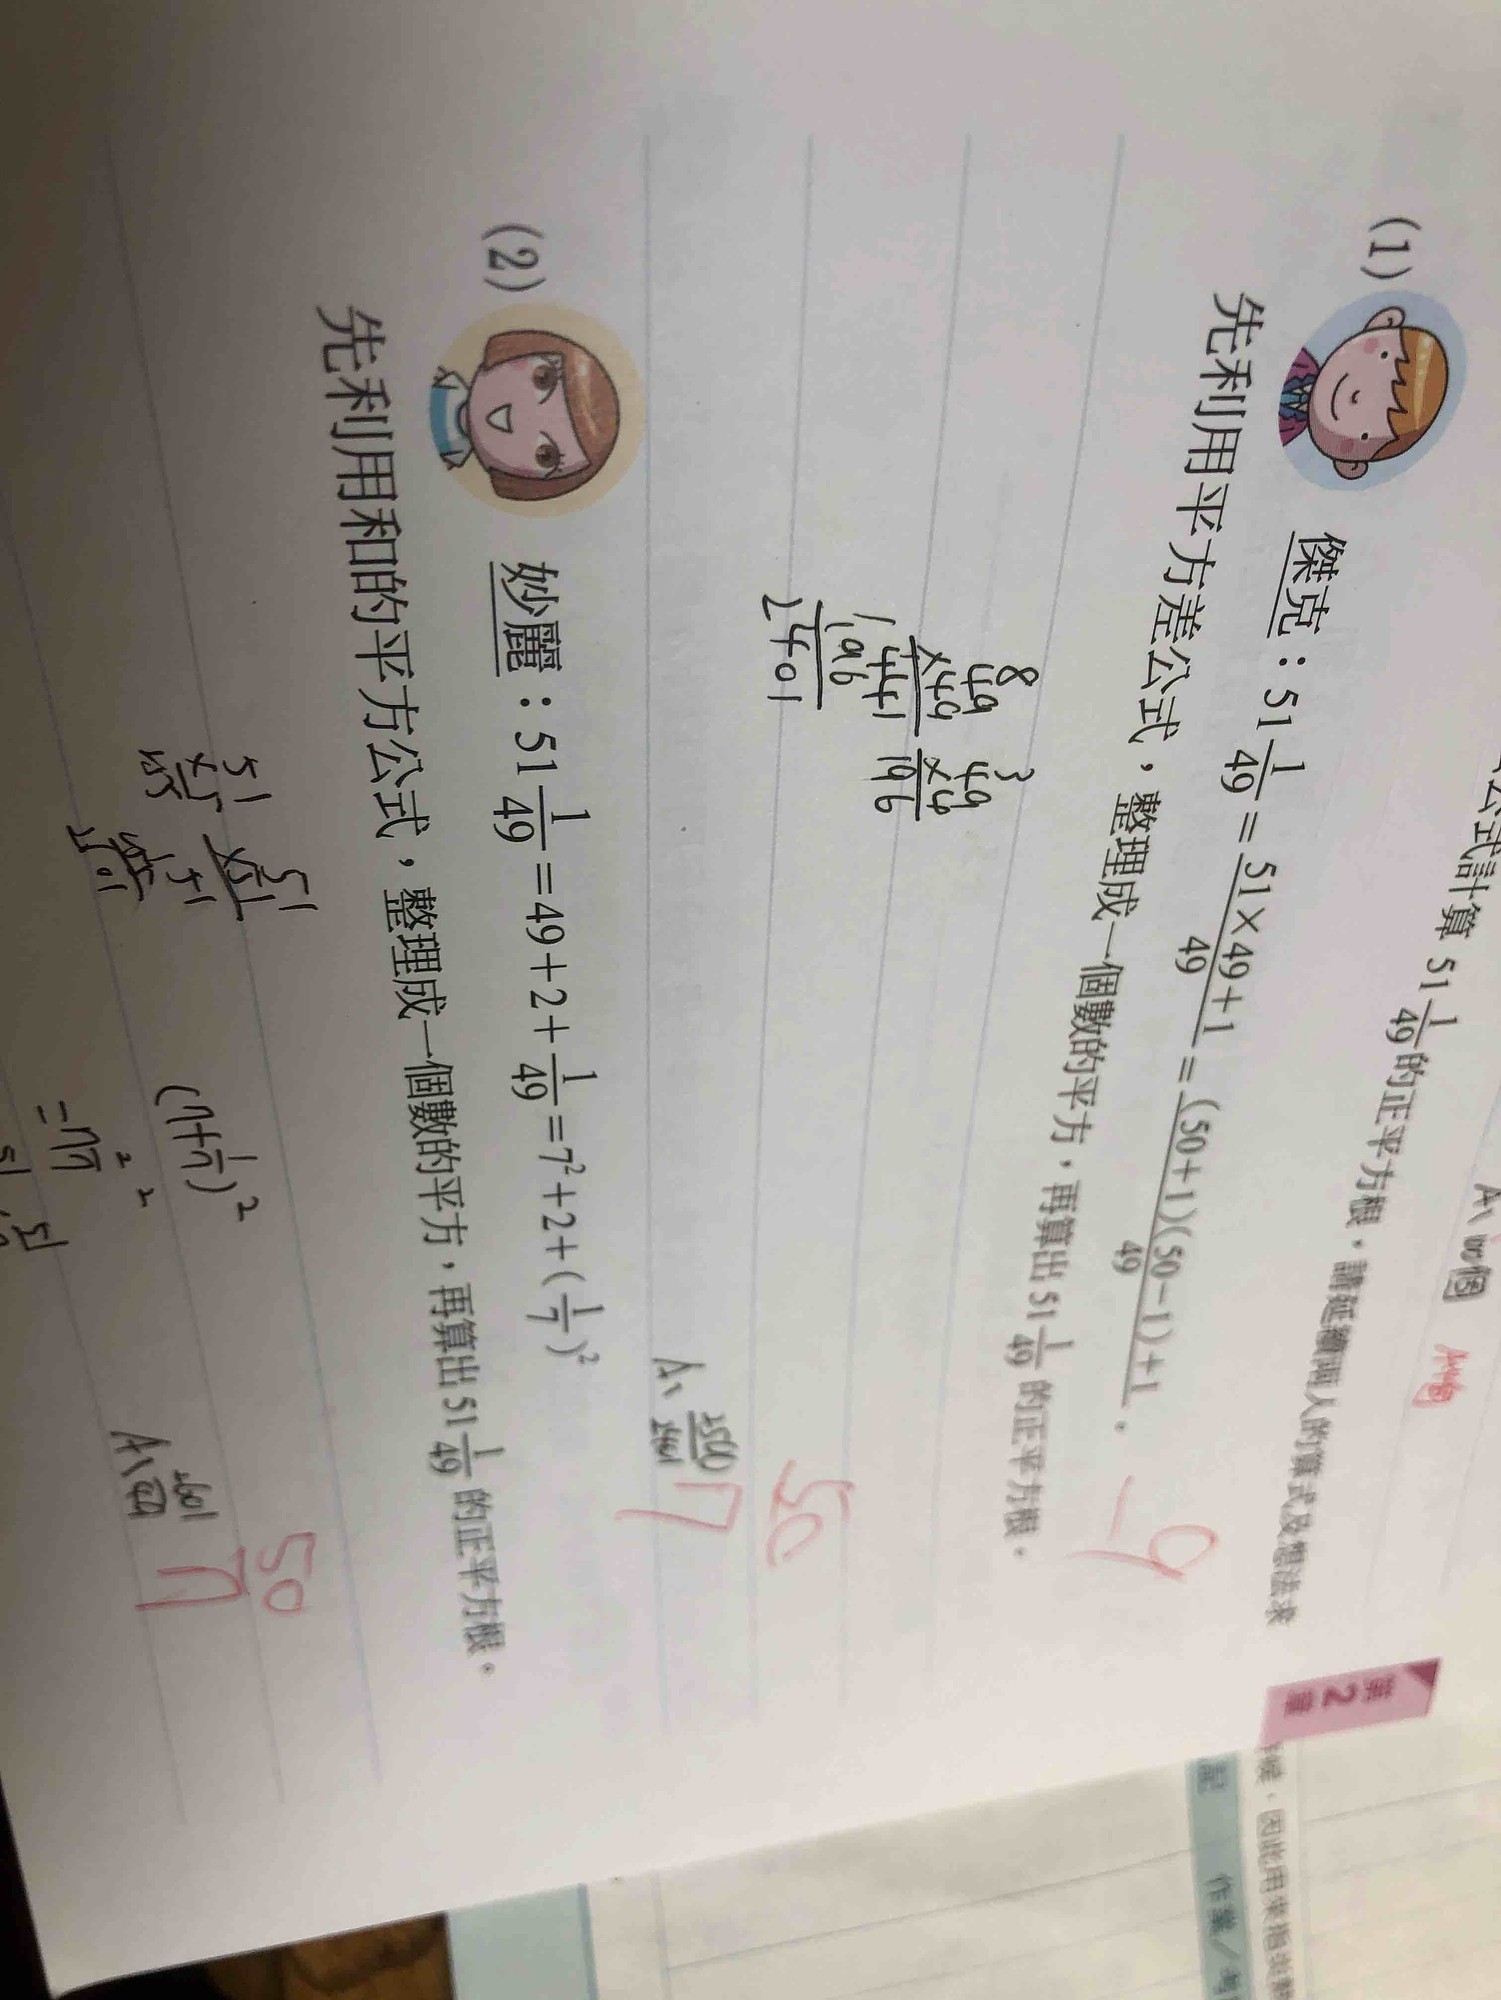 公式計算 51 1/49 的正平方根，請延續兩人的算式及想法求
A、100個
(1) 傑克：51 1/49 = (51×49+1)/49 = ((50+1)(50−1)+1)/49。
先利用平方差公式，整理成一個數的平方，再算出 51 1/49 的正平方根。
-9
8 3
49 49
×49 ×4
441 196
196
2401
50
7
A、2500/2401
(2) 妙麗：51 1/49 = 49+2+1/49 = 7²+2+(1/7)²
先利用和的平方公式，整理成一個數的平方，再算出 51 1/49 的正平方根。
51
×51
51
255
2601
51
×5
255
(7+1/7)²
50
7
A、2601
第2章
作業／考